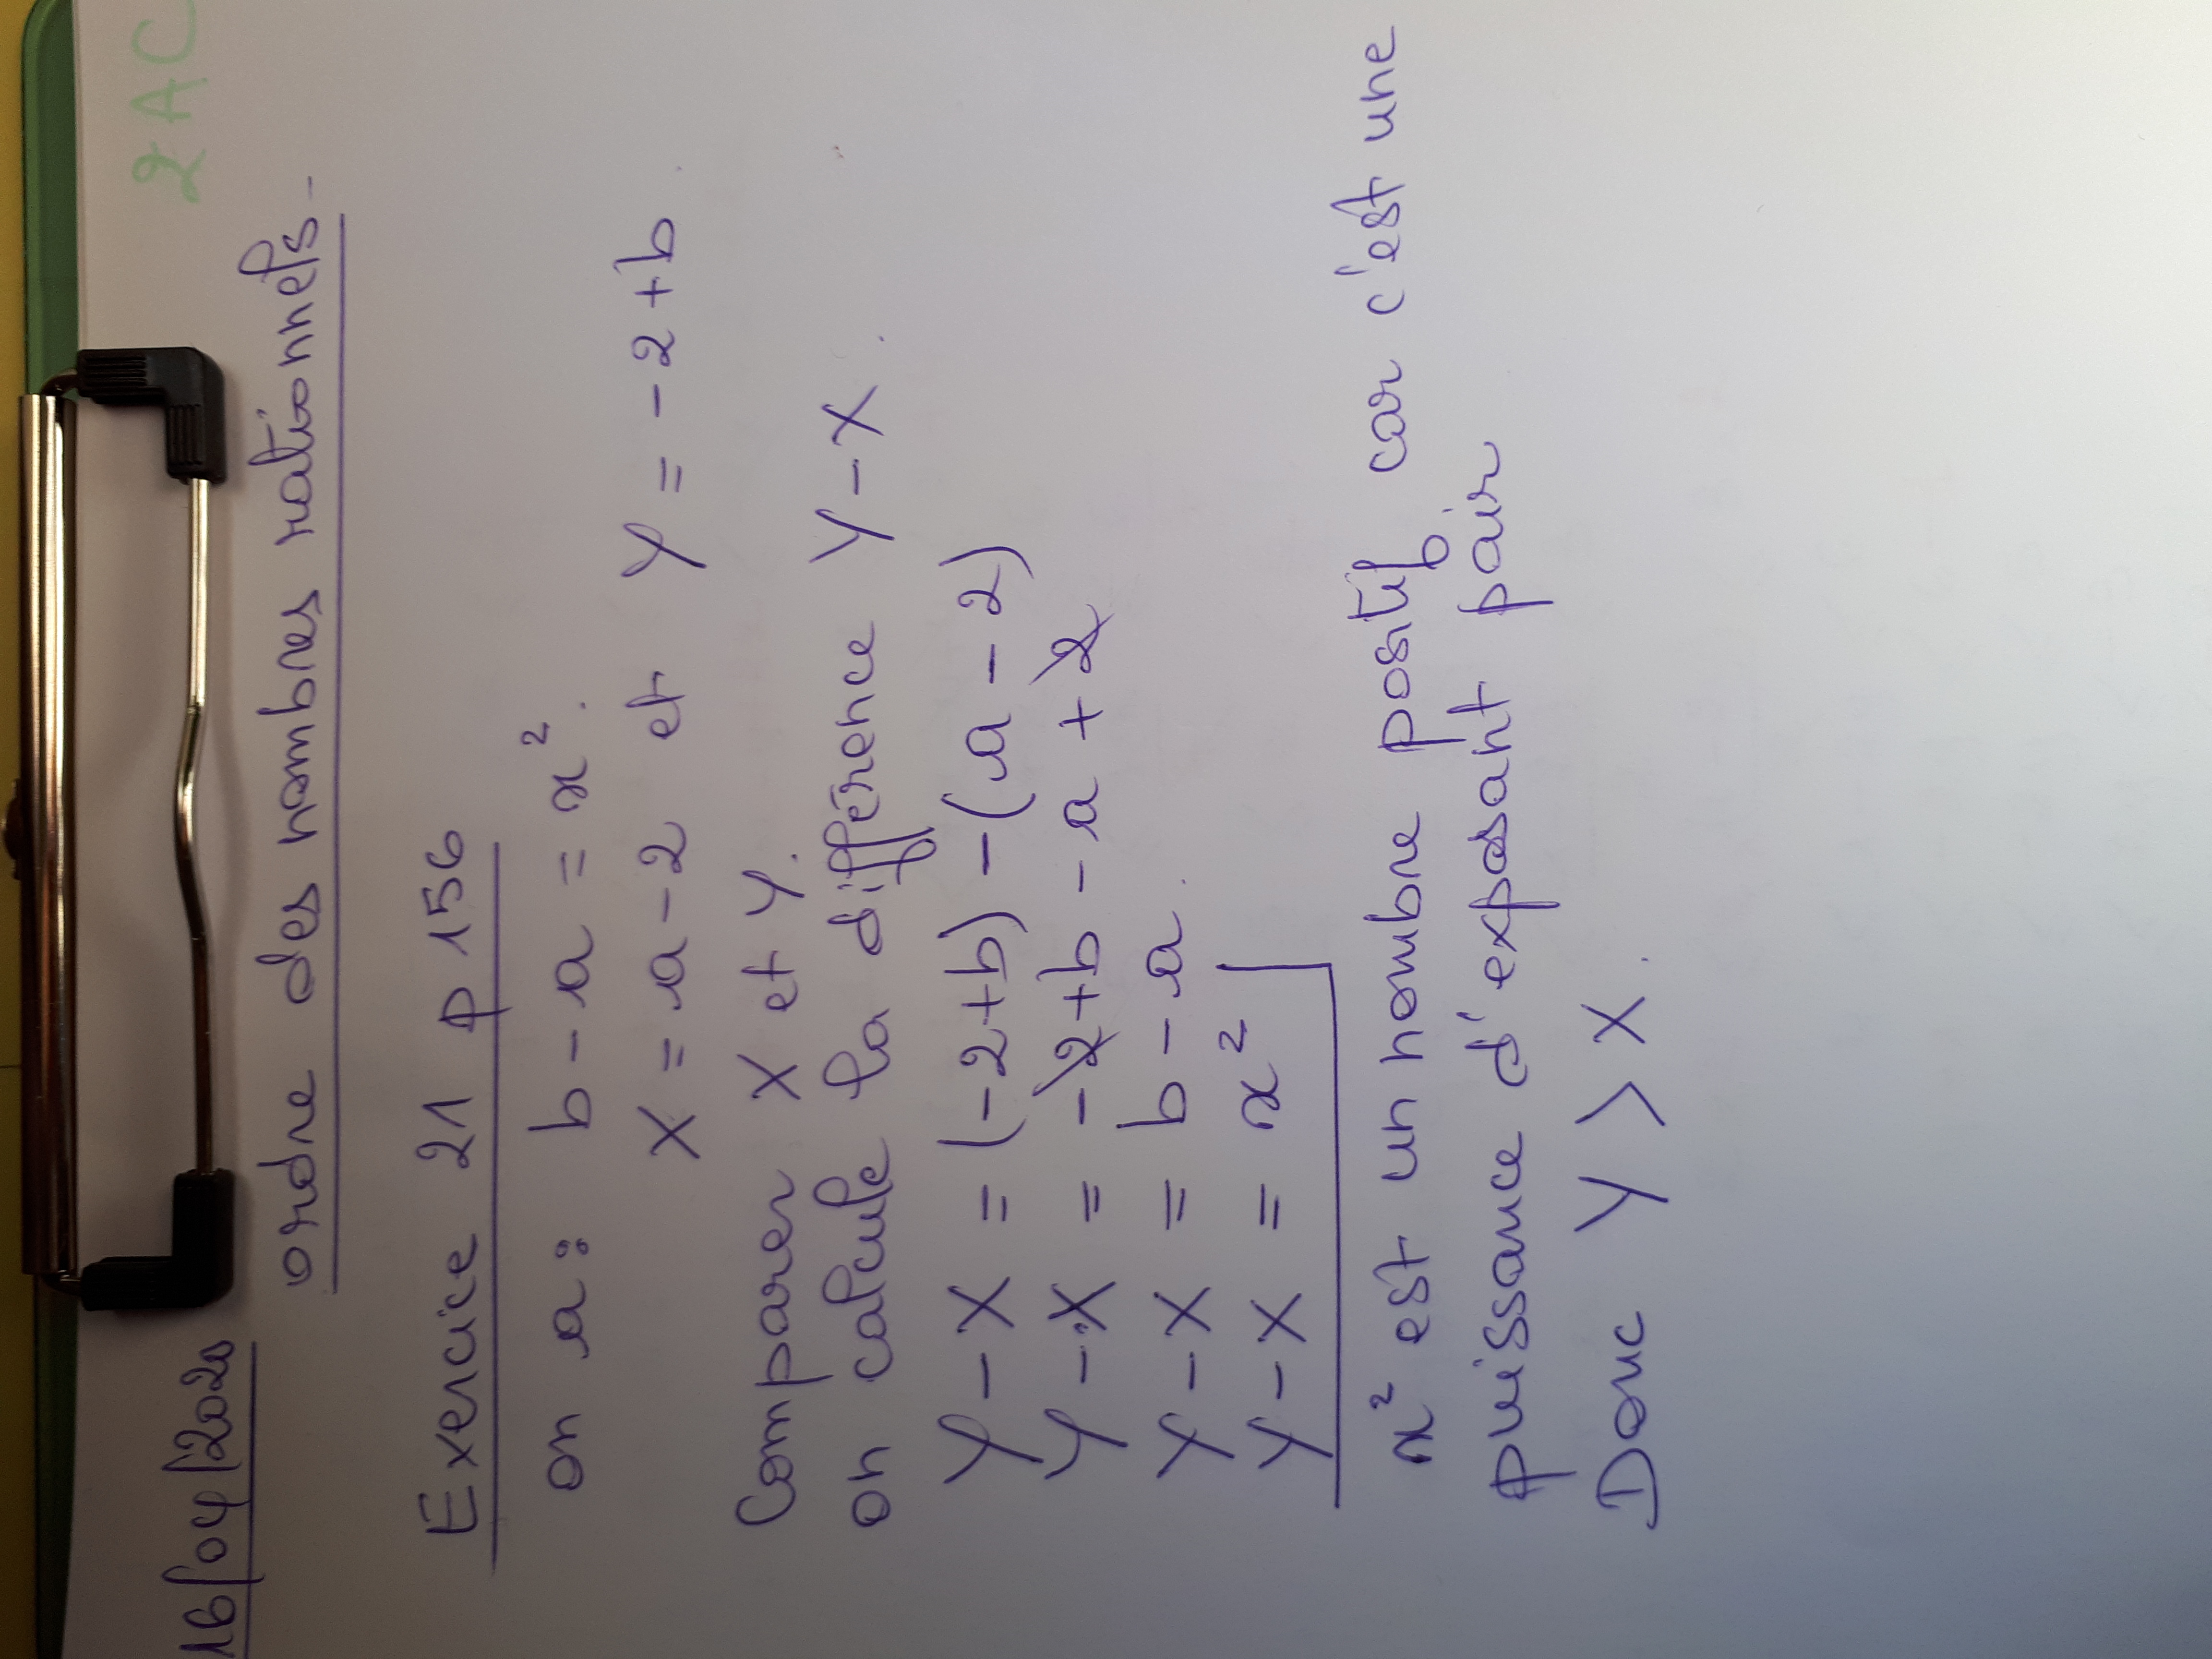 2AC
16/04/2020
ordre des nombres rationnels-
Exercice 21 p 156
on a: b - a = x².
X = a - 2 et Y = -2 + b.
Comparer X et Y.
on calcule la différence Y - X.
Y - X = (-2+b) - (a - 2)
Y - X = -2 + b - a + 2
Y - X = b - a.
Y - X = x²
x² est un nombre positif car c'est une
puissance d'exposant pair
Donc Y > X.